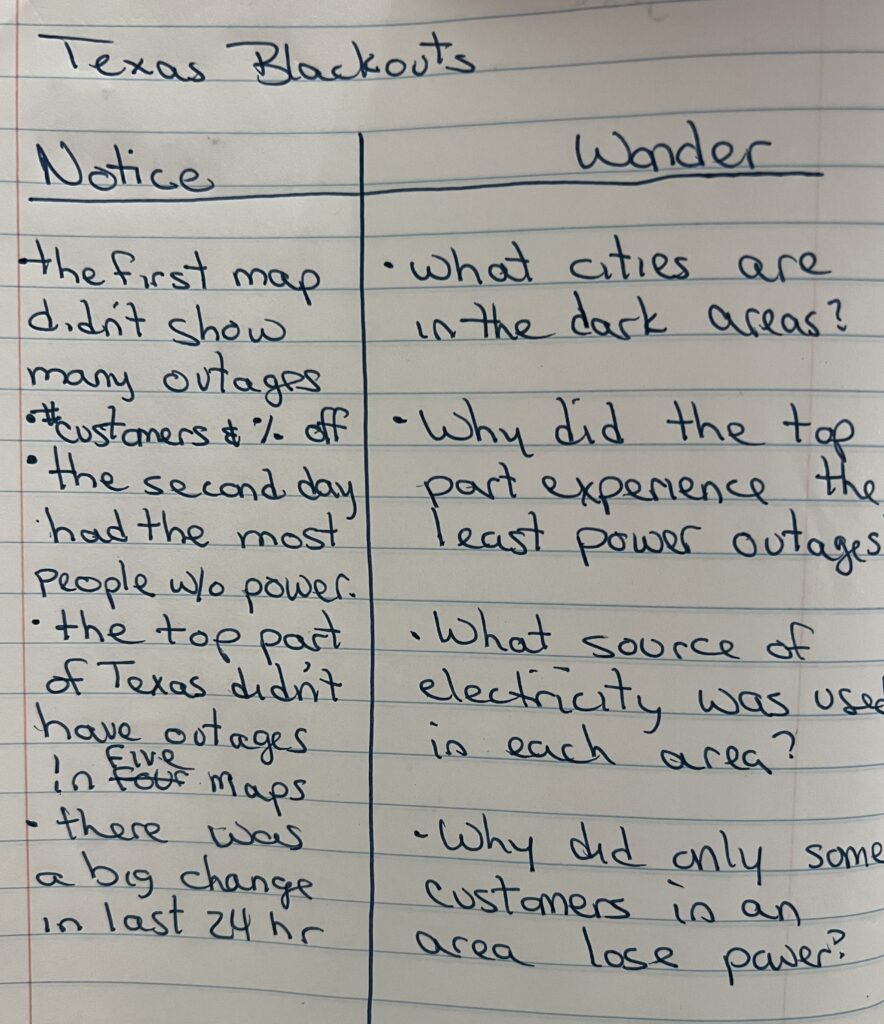 Texas Blackouts
Notice
·the first map
didn't show
many outages
·#customers & % off
·the second day
had the most
people w/o power.
·the top part
of Texas didn't
have outages
in four five maps
·there was
a big change
in last 24 hr
Wonder
·what cities are
in the dark areas?
·Why did the top
part experience the
least power outages
·What source of
electricity was used
in each area?
·Why did only some
customers in an
area lose power?